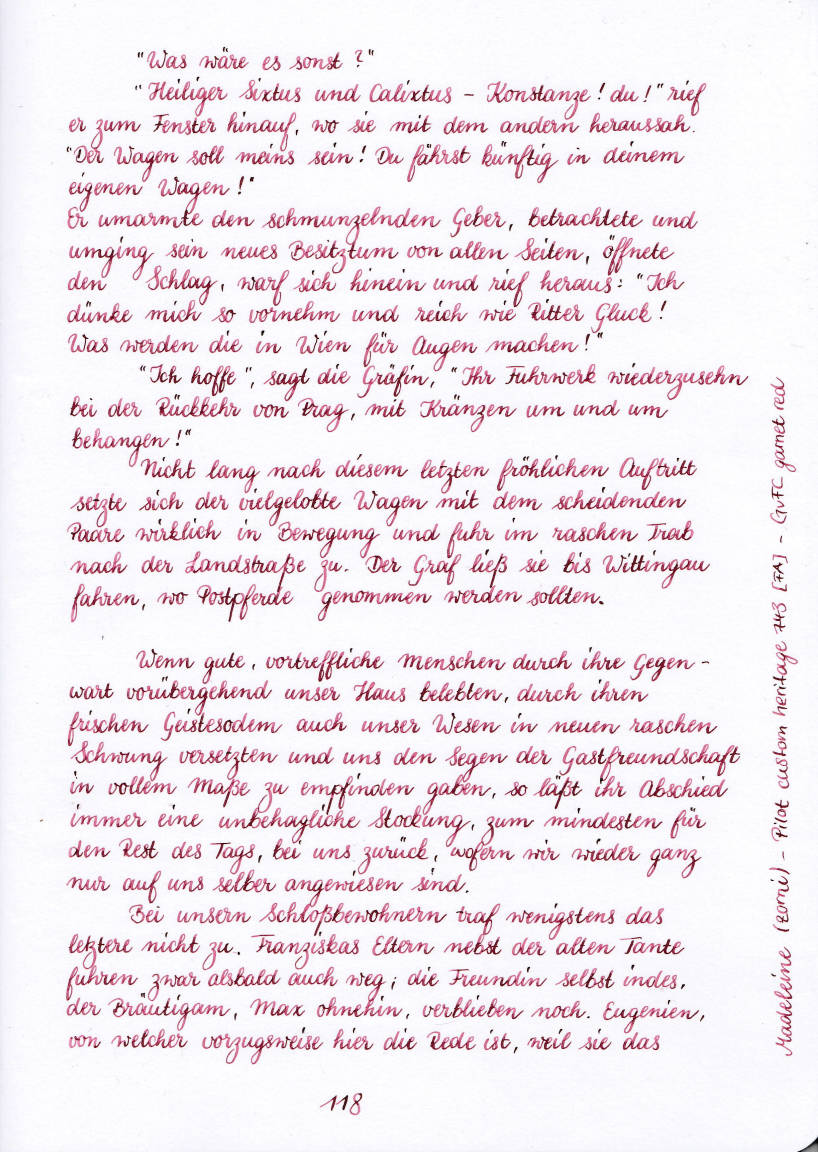 "Was wäre es sonst?"
"Heiliger Sixtus und Calixtus – Konstanze! du!" rief
er zum Fenster hinauf, wo sie mit dem andern heraussah.
"Der Wagen soll meins sein! Du fährst künftig in deinem
eigenen Wagen!"
Er umarmte den schmunzelnden Geber, betrachtete und
umging sein neues Besitztum von allen Seiten, öffnete
den Schlag, warf sich hinein und rief heraus: "Ich
dünke mich so vornehm und reich wie Ritter Gluck!
Was werden die in Wien für Augen machen!"
"Ich hoffe", sagt die Gräfin, "Ihr Fuhrwerk wiederzusehn
bei der Rückkehr von Prag, mit Kränzen um und um
behangen!"
Nicht lang nach diesem letzten fröhlichen Auftritt
setzte sich der vielgelobte Wagen mit dem scheidenden
Paare wirklich in Bewegung und fuhr im raschen Trab
nach der Landstraße zu. Der Graf ließ sie bis Wittingau
fahren, wo Postpferde genommen werden sollten.
Wenn gute, vortreffliche Menschen durch ihre Gegen-
wart vorübergehend unser Haus belebten, durch ihren
frischen Geistesodem auch unser Wesen in neuen raschen
Schwung versetzten und uns den Segen der Gastfreundschaft
in vollem Maße zu empfinden gaben, so läßt ihr Abschied
immer eine unbehagliche Stockung, zum mindesten für
den Rest des Tags, bei uns zurück, wofern wir wieder ganz
nur auf uns selber angewiesen sind.
Bei unsern Schloßbewohnern traf wenigstens das
letztere nicht zu. Franziskas Eltern nebst der alten Tante
fuhren zwar alsbald auch weg; die Freundin selbst indes,
der Bräutigam, Max ohnehin, verblieben noch. Eugenien,
von welcher vorzugsweise hier die Rede ist, weil sie das
118
Madeleine (zorni) – Pilot custom heritage 743 [FA] – GvFC garnet red